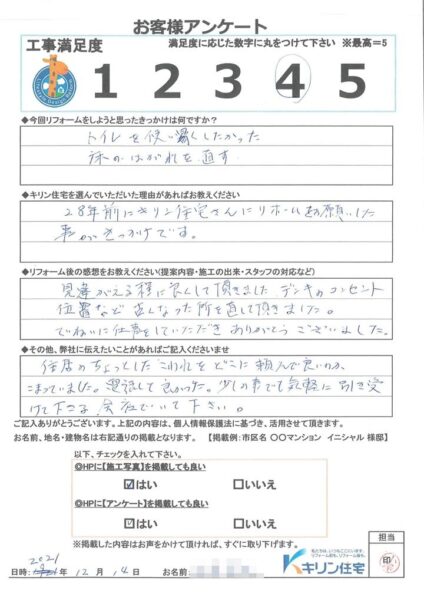 お客様アンケート
工事満足度
満足度に応じた数字に丸をつけて下さい ※最高＝5
1 2 3 4 5
◆今回リフォームをしようと思ったきっかけは何ですか?
トイレを使い易くしたかった
床のはがれを直す
◆キリン住宅を選んでいただいた理由があればお教えください
28年前にキリン住宅さんにリホームお願いした
事がきっかけです。
◆リフォーム後の感想をお教えください(提案内容・施工の出来・スタッフの対応など)
見違がえる様に良くして頂きました デンキのコンセント
位置など 古くなった所を直して頂きました。
でいねいに仕事をしていただき ありがとうございました。
◆その他、弊社に伝えたいことがあればご記入くださいませ
住居のちょっとしたこわれを どこに頼んで良いのか、
こまっていました。 電話して良かった。 少しの事でも気軽に引き受
けて下さる 会社でいて下さい。
ご記入ありがとうございます。上記の内容は、個人情報保護法に基づき、活用させて頂きます。
お名前、地名・建物名は右記通りの掲載となります。 【掲載例:市区名 〇〇マンション イニシャル 様邸】
以下、チェックを入れて下さい。
◎HPに【施工写真】を掲載しても良い
☑はい □いいえ
◎HPに【アンケート】を掲載しても良い
☑はい □いいえ
※掲載した内容はお声をかけて頂ければ、すぐに取り下げます。
担当
印
キリン住宅
2021
日時: 年 12 月 14 日 お名前